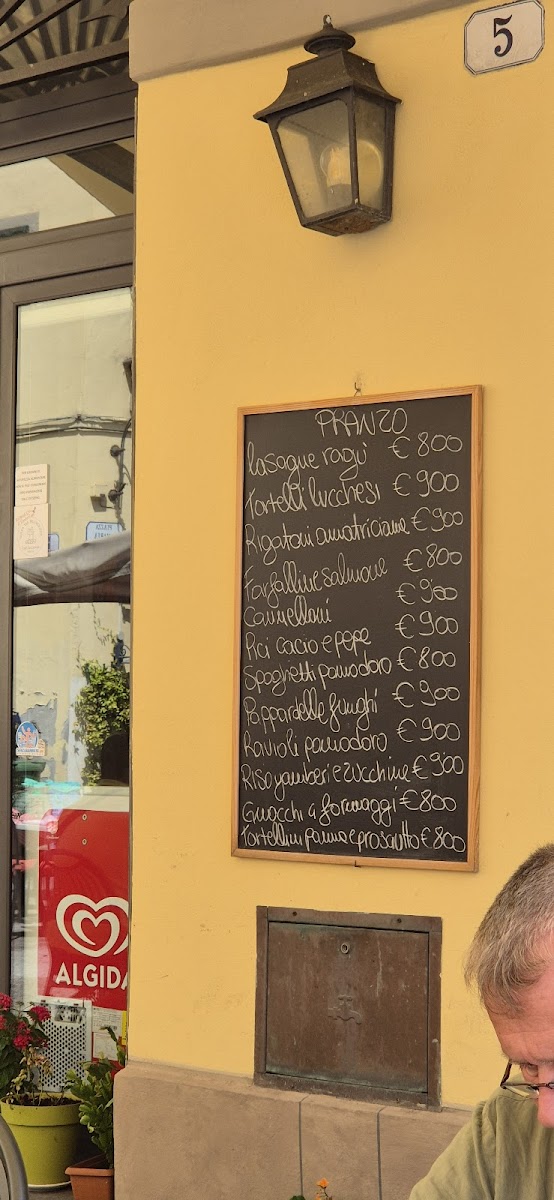 5
PRANZO
lasagne ragù € 800
Tortelli lucchesi € 900
Rigatoni amatriciana € 900
Farfalline salmone € 800
Cannelloni € 900
Pici cacio e pepe € 900
Spaghetti pomodoro € 800
Pappardelle funghi € 900
Ravioli pomodoro € 900
Riso gamberi e zucchine € 900
Gnocchi 4 formaggi € 800
Tortellini panna e prosciutto € 800
ALGIDA